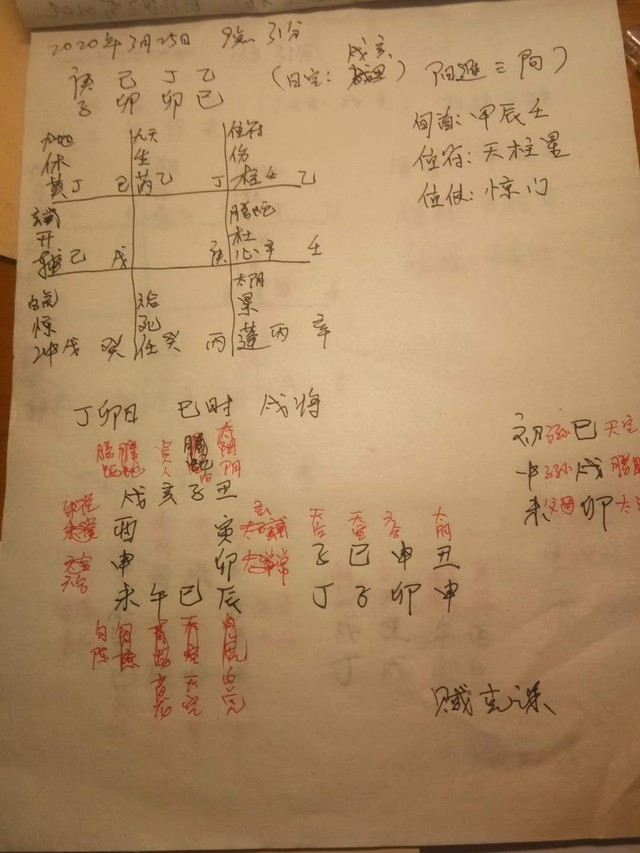 2020年3月25日 9点31分
庚 己 丁 乙 (日空: 戌亥) 阳遁三局)
子 卯 卯 巳
旬首: 甲辰壬
值符: 天柱星
值使: 惊门
九地 九天 值符
休 生 伤
英丁 己 芮乙 丁 柱壬 乙
玄武 腾蛇
开 杜
辅己 戊 庚 心辛 壬
白虎 六合 太阴
惊 死 景
冲戊 癸 任癸 丙 蓬丙 辛
丁卯日 巳时 戌将
初 子孙 巳 天空
中 子孙 戌 腾蛇
末 父母 卯 太
腾蛇 贵人 太阴
戌 亥 子 丑
酉 寅
申 卯
未 午 巳 辰
天后 天空 六合 太阴
子 巳 申 丑
丁 子 卯 申
青龙 天空 白虎
贼克课